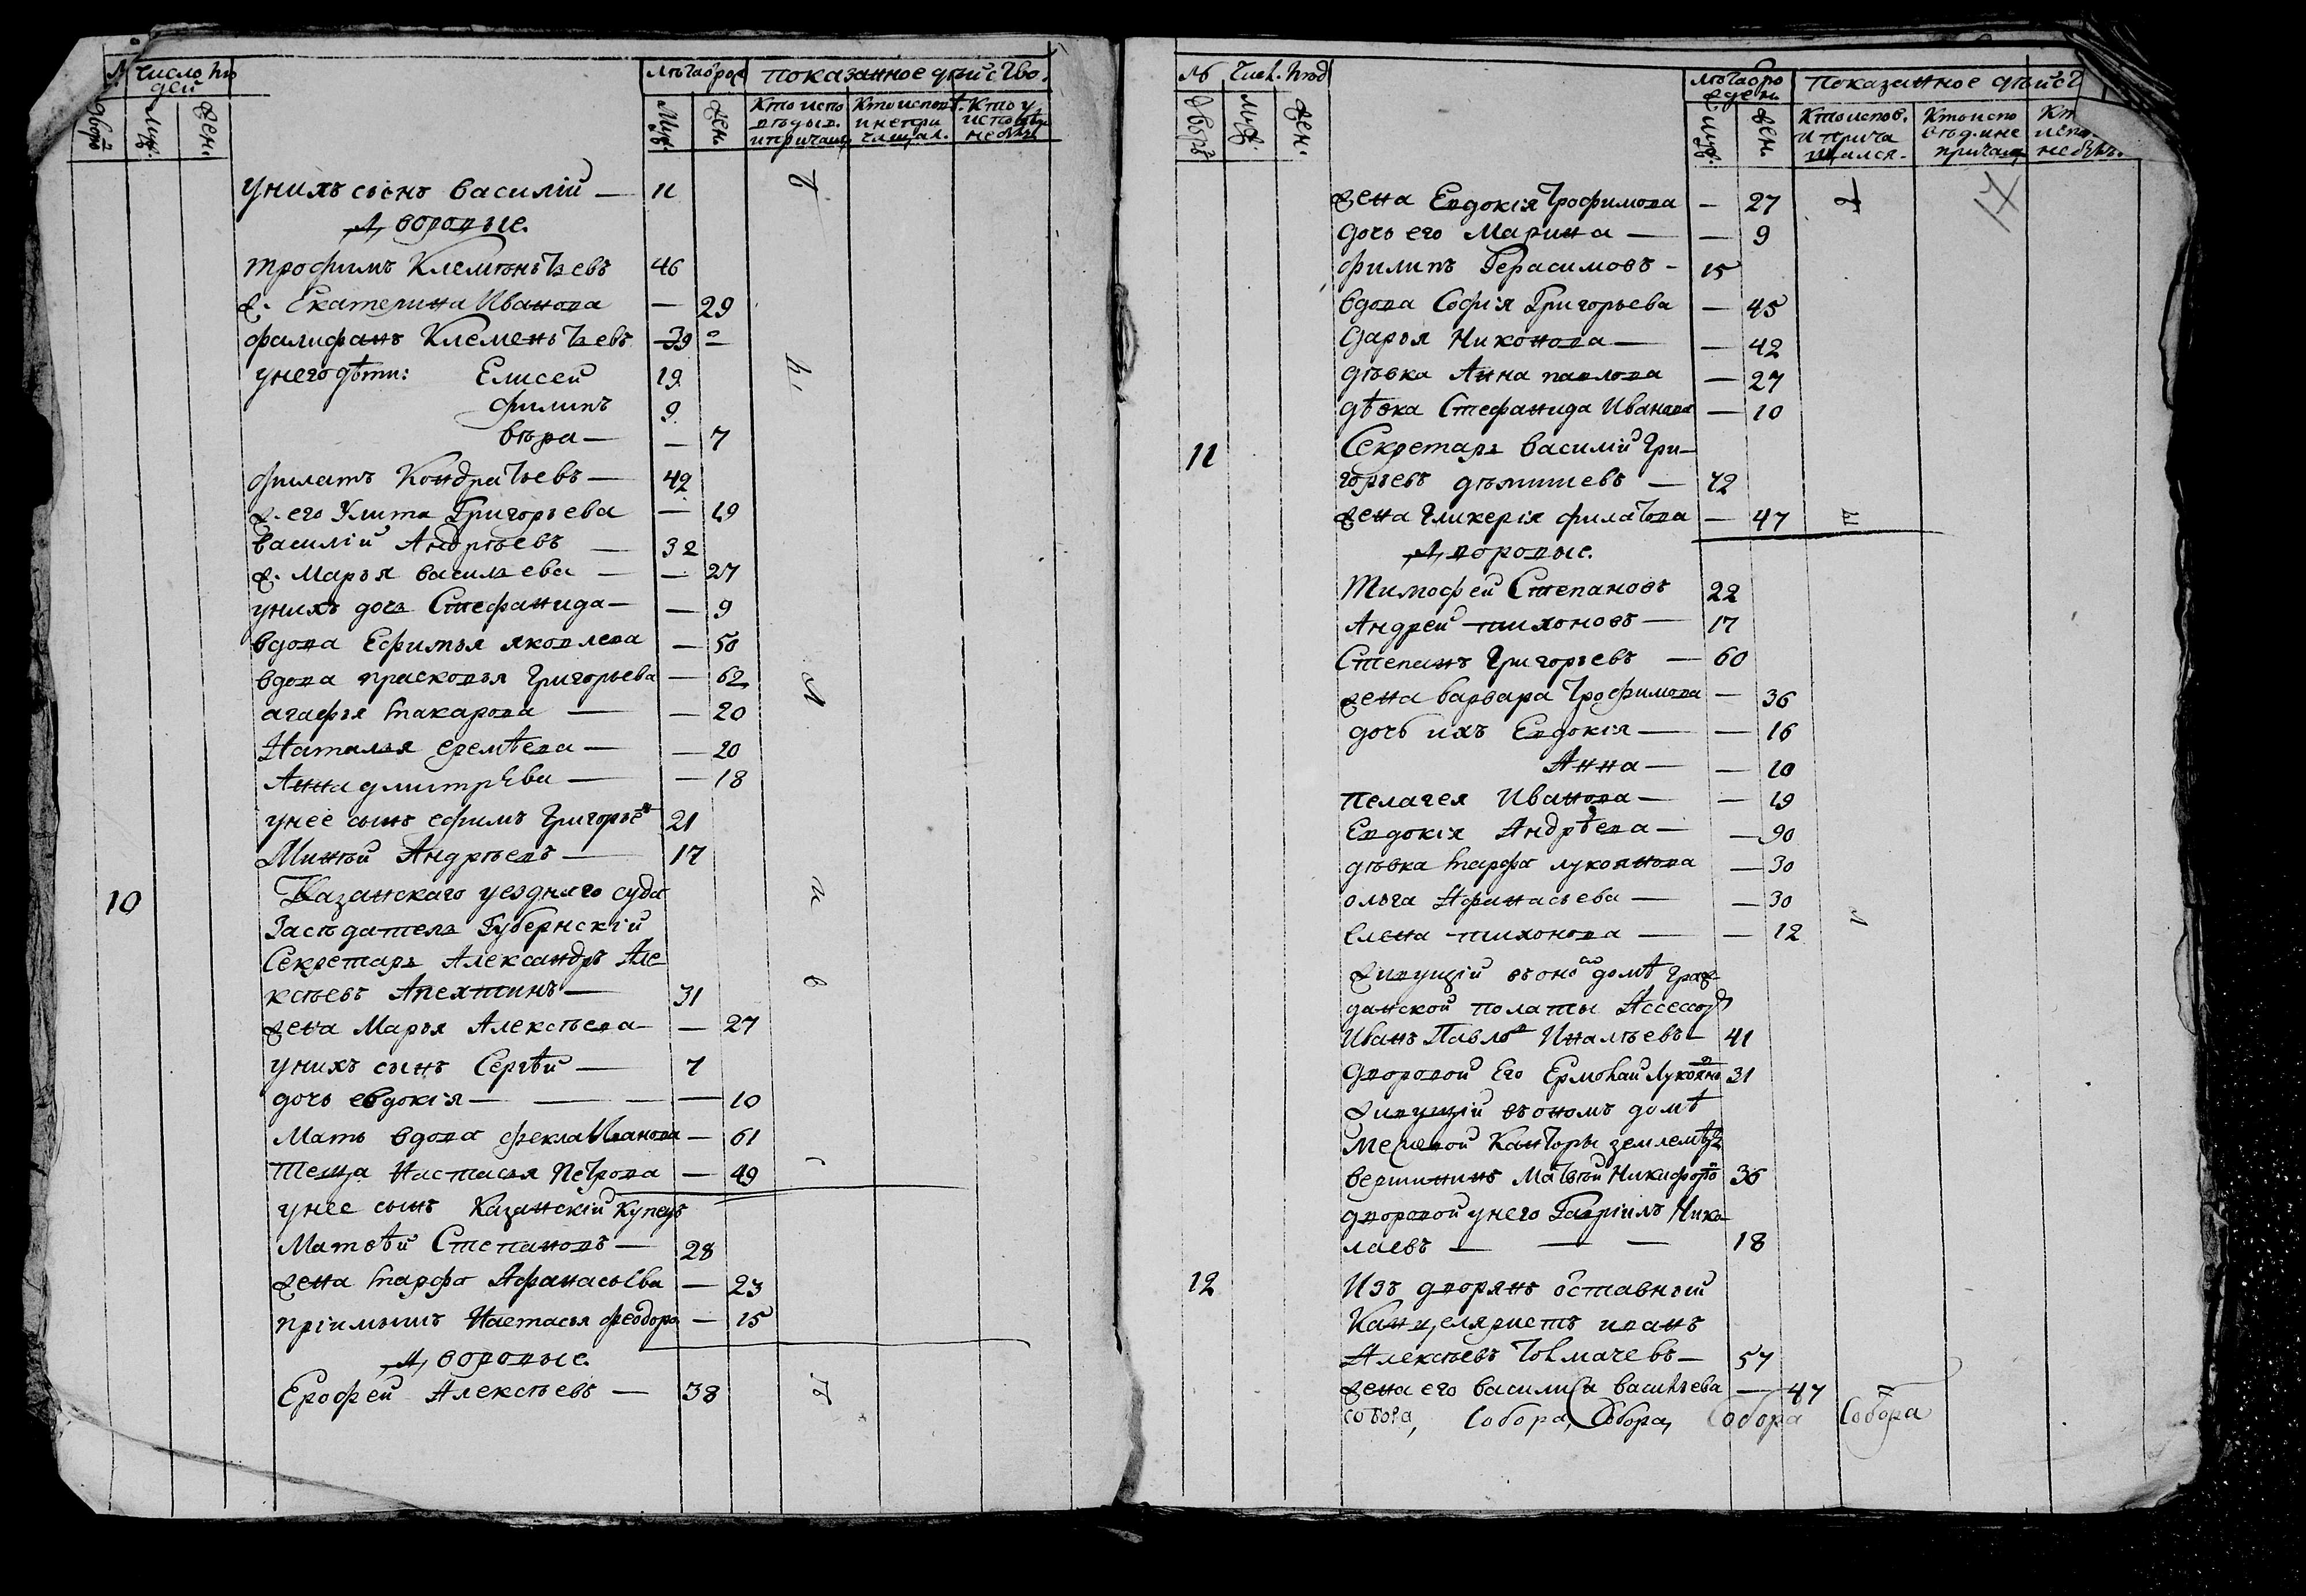 № Число лю
дей
Дворо
Муж.
Жен.
Лѣта от рож
Показанное дѣйство.
Муж.
Жен.
Кто испо
вѣдыв.
и причащ.
Кто исповѣ.
и не при
чащал.
Кто у
исповѣди
не былъ
у нихъ сынъ Василій — 11
Дворовые.
Трофимъ Клементьевъ 46
ж. Екатерина Иванова — 29
Фалифанъ Клементьевъ 39 —
у него дѣти: Елисей 19
Филипъ 9
Вѣра — — 7
Филатъ Кондратьевъ — 42
ж. его Улита Григорьева — 19
Василій Андрѣевъ — 32
ж. Марья Васильева — — 27
у нихъ дочь Стефанида — — 9
вдова Ефимья Яковлева — 50
вдова Прасковья Григорьева — 62
Агафья Макарова — — 20
Наталья Еремѣева — — 20
Анна Дмитрѣва — — 18
у нее сынъ Ефимъ Григорьев 21
Минѣй Андрѣевъ — 17
10 Казанскаго уезднаго суда
Засѣдатель Губернскій
Секретарь Александръ Але
ксѣевъ Апехтинъ — 31
жена Марья Алексѣева — — 27
у нихъ сынъ Сергѣй — 7
дочь Евдокія — — — — 10
Мать вдова Фекла Иванова — 61
Теща Настасья Петрова — 49
у нее сынъ Казанскій Купецъ
Матвѣй Степановъ — 28
жена Марфа Афанасьева — 23
пріимышъ Настасья Феодоро — 15
Дворовые.
Ерофей Алексѣевъ — 38
№ Числ. люд
Дворъ
Муж.
Жен.
Лѣта от ро
жден.
Показанное дѣйст
Муж.
Жен.
Кто испов.
и прича
щался.
Кто испо
вѣд. и не
причащ,
Кт
испо.
не былъ.
17
жена Евдокія Трофимова — 27
дочь его Марина — — 9
Филипъ Герасимовъ - 15
вдова Софія Григорьева — 45
Дарья Никонова — — 42
дѣвка Анна Павлова — 27
дѣвка Стефанида Иванова — 10
11 Секретарь Василій Гри-
горьевъ — 72
жена Гликерія Филатова — 47
Дворовые.
Тимофей Степановъ 22
Андрей Тихоновъ — 17
Степанъ Григорьевъ — 60
жена Варвара Трофимова — 36
дочь ихъ Евдокія — — 16
Анна — — 10
Пелагея Иванова — — 19
Евдокія Андрѣева — — 90
дѣвка Марфа Лукоянова — 30
Ольга Афанасьева — — 30
Елена Тихонова — — 12
Живущій въ оном домѣ граж
данской полаты Ассессор
Иванъ Павлов Инальевъ — 41
дворовой Его Ермолай Лукоянов 31
Живущій въ ономъ домѣ
Межевой Канторы землемѣръ
Вершининъ Матвѣй Никифоров 36
дворовой у него Гавріилъ Нико-
лаевъ — — — 18
12 Изъ дворянъ отставный
Канцеляристъ Иванъ
Алексѣевъ Толмачевъ — 57
жена его Василиса Васильева — 47
собора, Собора, Собора, Собора Собора